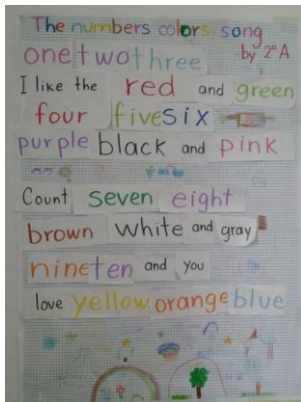 The numbers colors song
by 2°A
one two three
I like the red and green
four five six
purple black and pink
Count seven eight
brown white and gray
nine ten and you
love yellow orange blue